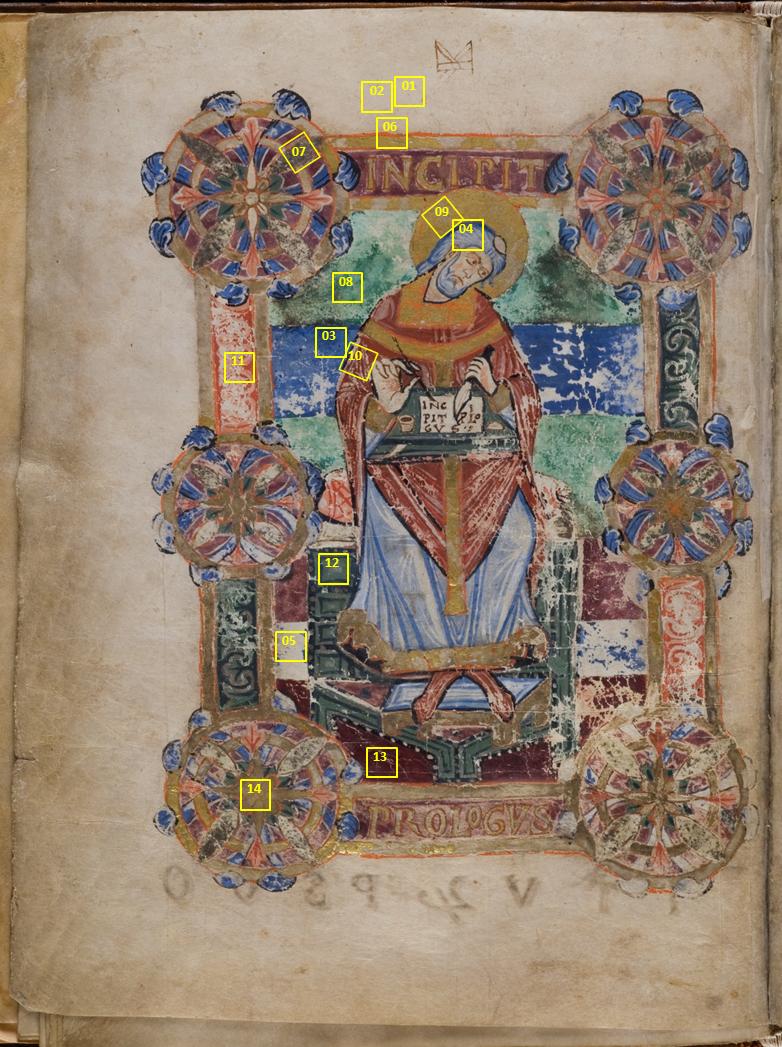 02 01
06
07
INCIPIT
09
04
08
03
10
11
INC I
PIT PLO
GVS
12
05
13
14
PROLOGVS